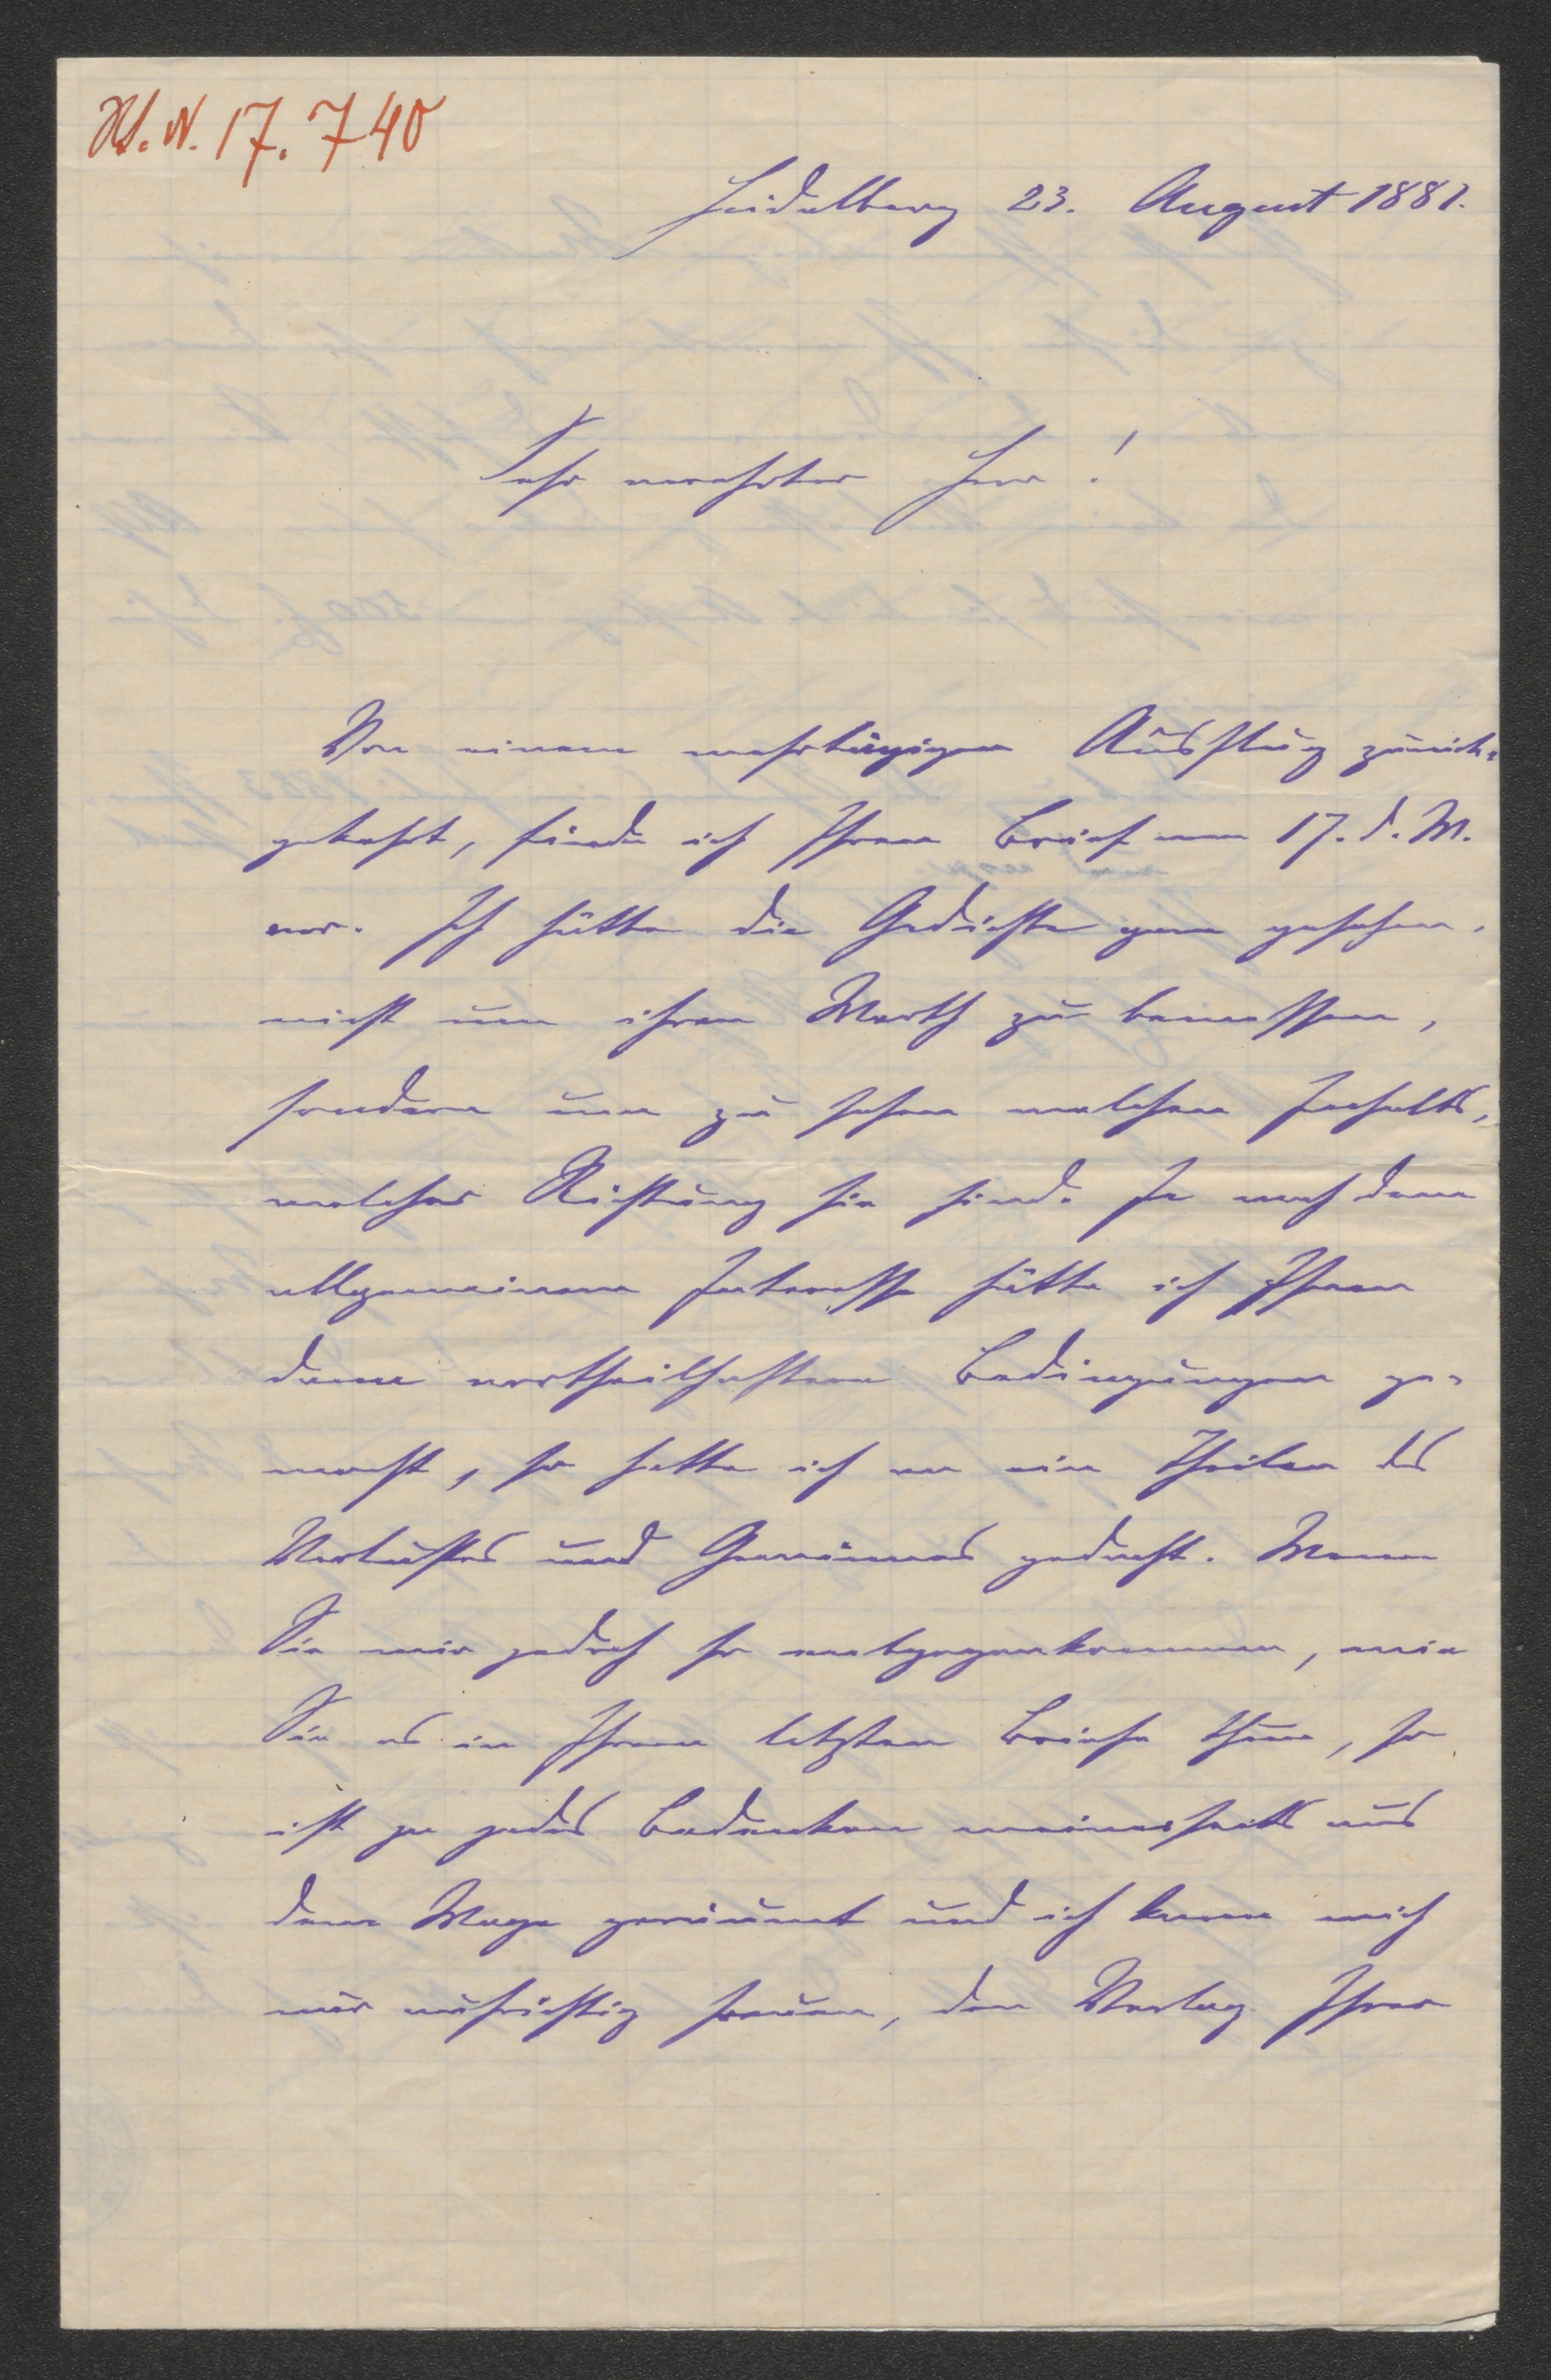 H.I.N. 17.740
Heidelberg 23. August 1881.
Sehr verehrter Herr!
Von einem mehrtägigen Ausflug zurück-
gekehrt, finde ich Ihren Brief vom 17. d. M.
vor. Ich hätte die Gedichte gern gesehen,
nicht um ihren Werth zu bemessen,
sondern um zu sehen welchen Inhalts,
welcher Richtung sie sind. Je nach dem
allgemeinen Interesse hätte ich Ihnen
dann vortheilhaftere Bedingungen ge-
macht, so hatte ich an ein Theilen des
Verlustes und Gewinnes gedacht. Wenn
Sie mir jedoch so entgegenkommen, wie
Sie es in Ihrem letzten Briefe thun, so
ist ja jedes Bedenken meinerseits aus
dem Wege geräumt und ich kann mich
nur aufrichtig freuen, den Verlag Ihrer